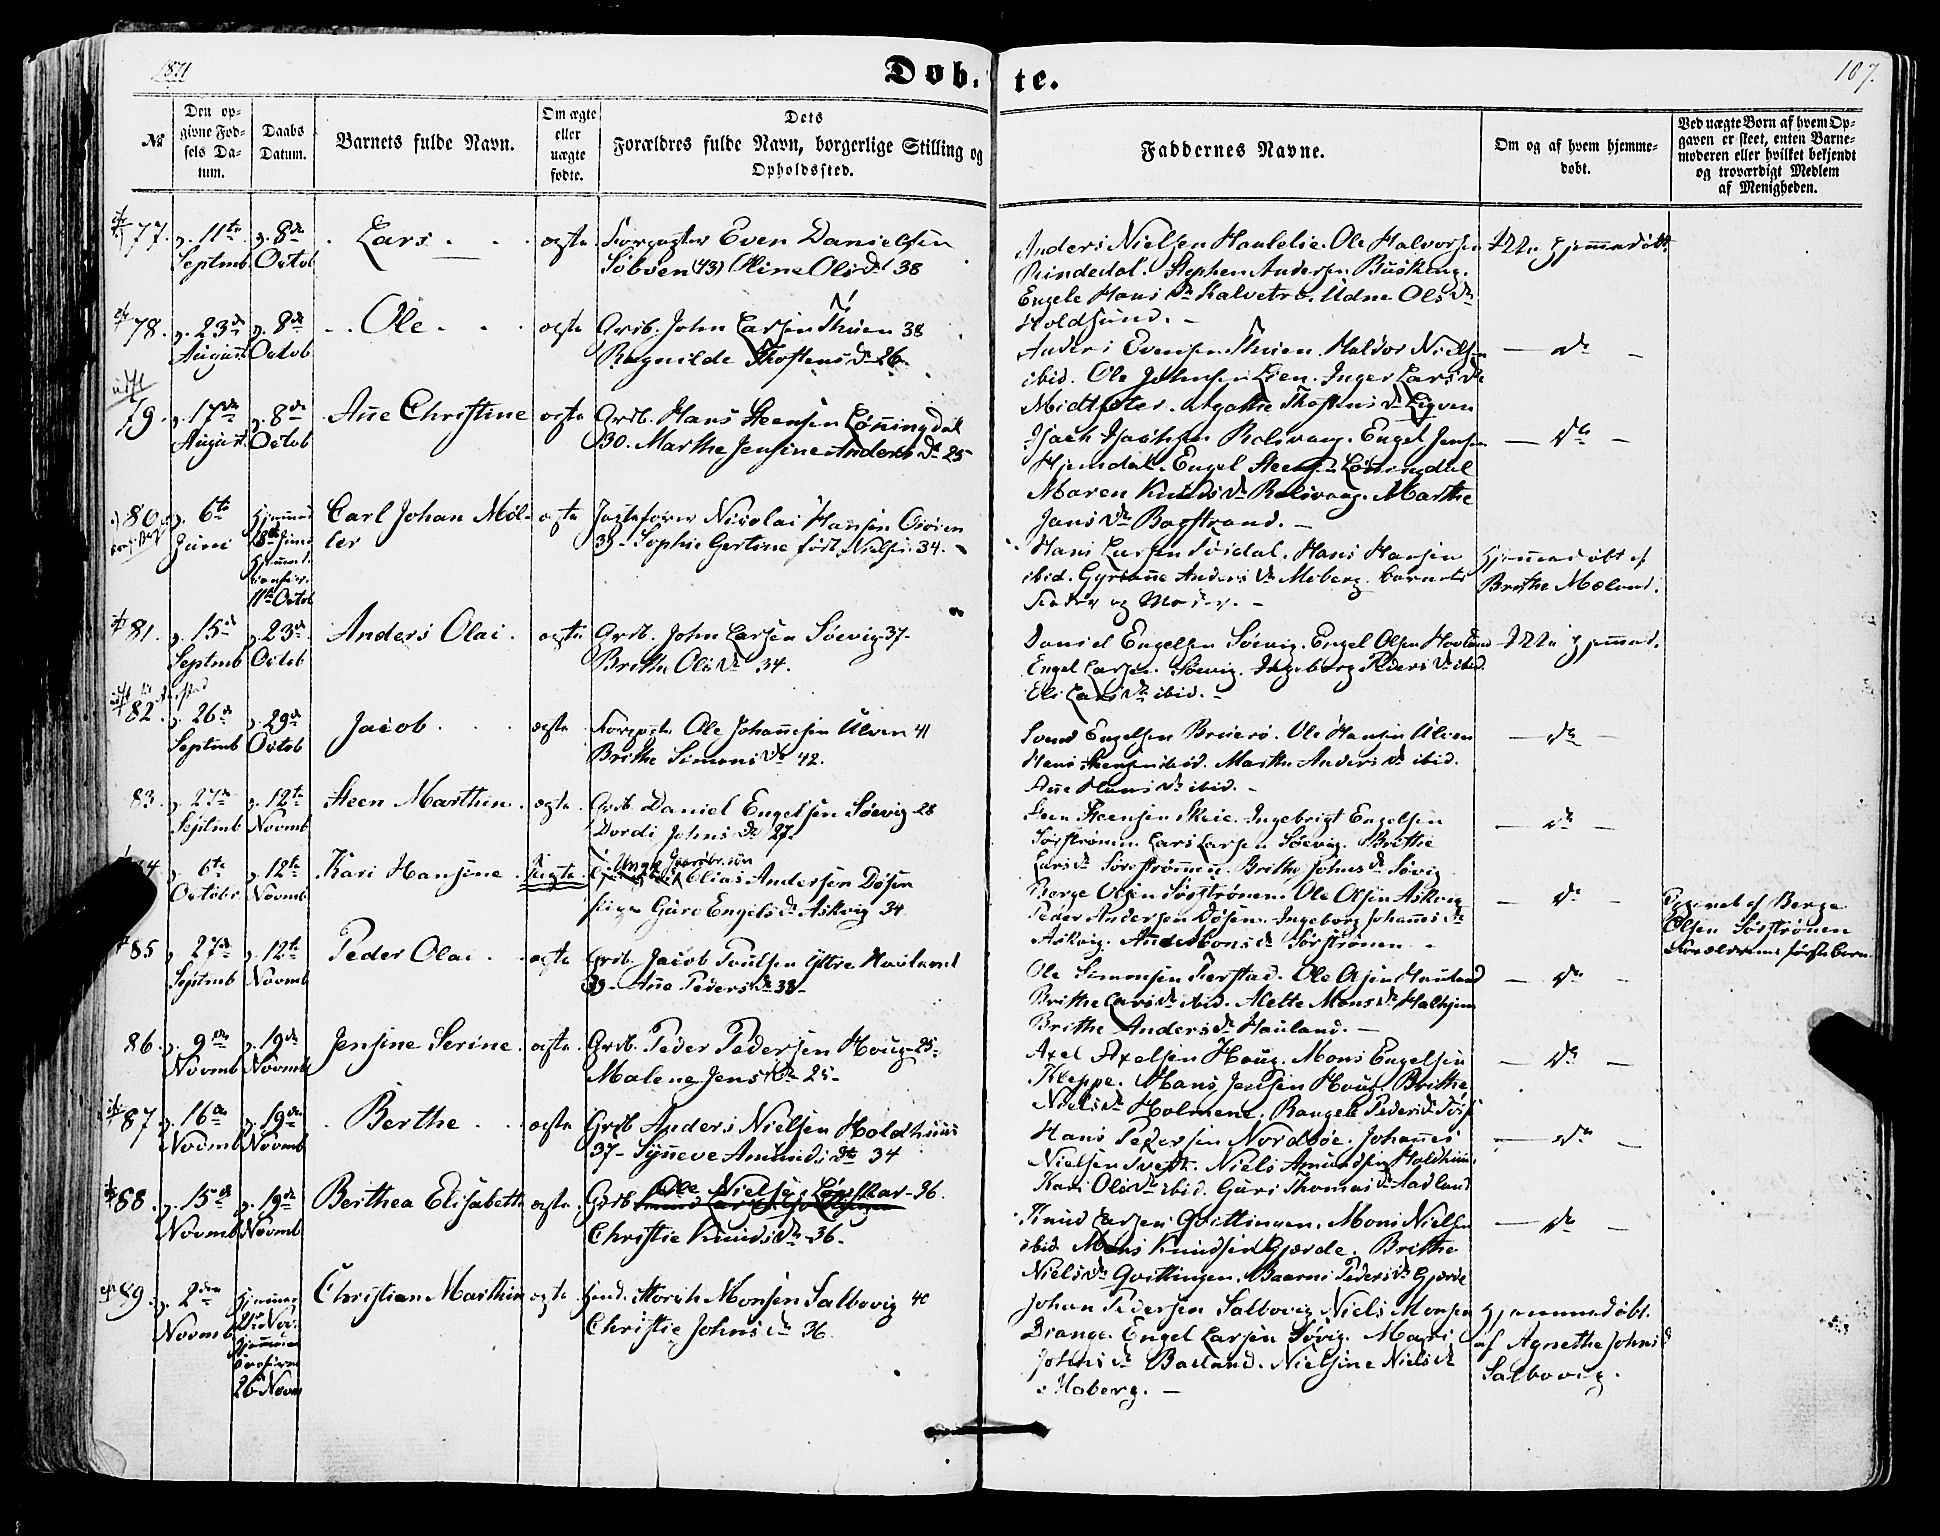 1871
Døb-te.
107.
№
Den opgivne Fødsels Datum.
Daabs Datum.
Barnets fulde Navn.
Om ægte eller uægte fødte.
Dets Forældres fulde Navn, borgerlige Stilling og Opholdssted.
Faddernes Navne.
Om og af hvem hjemmedøbt.
Ved uægte Børn af hvem Opgaven er skeet, enten Barnemoderen eller hvilket bekjendt og troværdigt Medlem af Menigheden.
77. 11te Septmb 8de Octob Lars ægte Forpagter Even Danielsen
Søbven (43) Oline Olsdr 38
Anders Nielsen Haukelie. Ole Halvorsen
Rindedal. Stephen Andersen
Engele Hansdr Kalvetræ. Udne Olsdr
Holdsund.
Ikke hjemmedøbt
78. 23de August 8de Octob Ole ægte Grdb. John Larsen Thuen 38
Ragnilde Thostensdr 26
Anders Evensen Thuen. Haldor Nielsen
ibid. Ole Johnsen Lien. Inger Larsdr
Midtsæter. Agathe Thostensdr Ligven
do
79. 17de August 8de Octob Ane Christine ægte Grdb. Hans Steensen Lønningdal
30. Marthe Jensine Andersdr 25
Isach Isachsen Rolsvaag. Engel Jensen
Hjemdal. Engel Steensen Lønningdal
Maren Knudsdr Rolsvaag. Marthe
Jansdr Bogstrand.
do
80. 6te Juni 11te Octob Carl Johan Møller ægte Nicolai Hansen Osøien
39 Sophie Gertine født Nielsen 34.
Hans Larsen Tøsdal. Hans Hansen
ibid. Gyriane Andersdr Moberg. barnets
Fader og Moder.
hjemmedøbt af
Brithe Mæland.
81. 15de Septmb 23de Octob Anders Olai ægte Grdb. John Larsen Søevig 37
Brithe Olsdr 34.
Daniel Engelsen Søevig. Engel Olsen Hovland
Engel Larsen Søevig. Ingeborg Pedersdr ibid
Eli Larsdr ibid.
Ikke hjemmed.
82. 26de Septmb 29de Octob Jacob ægte Ole Johannesen Ulven 41
Brithe Simonsdr 42.
Svend Engelsen Bruerø. Ole Hansen Ulven
Hans Steensen ibid. Marthe Andersdr ibid.
Ane Hansdr ibid.
do
83. 27de Septmb 12te Novmb Steen Marthin ægte Grdb Daniel Engelsen Søevig 28
Dordi Johnsdr 27.
Steen Steensen Skeie. Ingebrigt Engelsen
Sørstrømen. Lars Larsen Søevig. Brithe
Larsdr Sørstrømmen. Brithe Johnsdr Søvig
do
6te Octobr 12te Novmb Kari Hansine Uægte Elias Andersen Døsen
Pigen Guro Engelsdr Askvig 34
Berge Olsen Sørstrømen. Ole Olsen Askvig
Peder Andersen Døsen. Ingeborg Johannesdr
Askvig. Anne Monsdr Sørstrømen
do
Opgivet af Berge
Olsen Sørstrømen
Forældrenes første barn
85 27de Septmb 12te Novmb Peder Olai ægte Grdb. Jacob Poulsen Ytre Hovland
39 Ane Pedersdr 38
Ole Simonsen Tverstad. Ole Olsen Hauland
Brithe Larsdr ibid. Mette Monsdr Halhjem
Brithe Andersdr Hauland.
do
86. 9de Novmb 19de Novmb Jensine Serine ægte Grdb. Peder Pedersen Houg 25
Malene Jensdr 25
Axel Axelsen Houg. Mons Engelsen
Kleppe. Hans Jensen Houg. Brithe
Nielsdr Holmene. Rangele Pedersdr
do
87 16de Novmb 19de Novmb Berthe ægte Grdb Anders Nielsen Holdhuus
37 Synneve Amundsdtr 34
Hans Pedersen Nordbøe. Johannes
Nielsen Tveit. Niels Amundsen Holdhuus
Kari Olsdr ibid. Guri Thomasdr Aadland
do
88. 15de Novmb 19de Novmb Berthea Elisabeth ægte Grdb Ole Nielsen 36.
Christie Knudsdr 36.
Knud Larsen Gvittingen. Mons Nielsen
ibid Mons Knudsen Gjærde. Brithe
Nielsdr Gvittingen. Pedersdr Gjærde
do
89. 2den Novmb 26 Novm Christian Marthin ægte Monsen Salbovig 40
Christie Johnsdr 36.
Johan Pedersen Salbovig Niels Monsen
Drange. Engel Larsen Søvig. Mari
Johnsdr Baeland. Nielsine Nielsdr
Moberg.
hjemmedøbt
af Agnethe Johnsd
Salbovig.